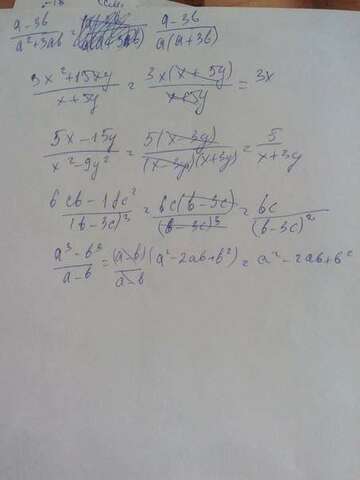 (a-3b)/(a²+3ab) = (a-3b)/(a(a+3b))
(3x²+15xy)/(x+5y) = 3x(x+5y)/(x+5y) = 3x
(5x-15y)/(x²-9y²) = 5(x-3y)/((x-3y)(x+3y)) = 5/(x+3y)
(6cb-18c²)/(b-3c)³ = 6c(b-3c)/(b-3c)³ = 6c/(b-3c)²
(a³-b³)/(a-b) = (a-b)(a²-2ab+b²)/(a-b) = a²-2ab+b²